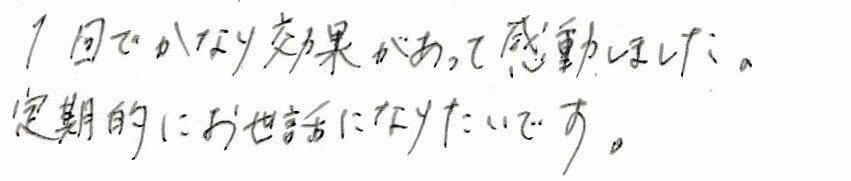 1回でかなり効果があって感動しました。
定期的にお世話になりたいです。